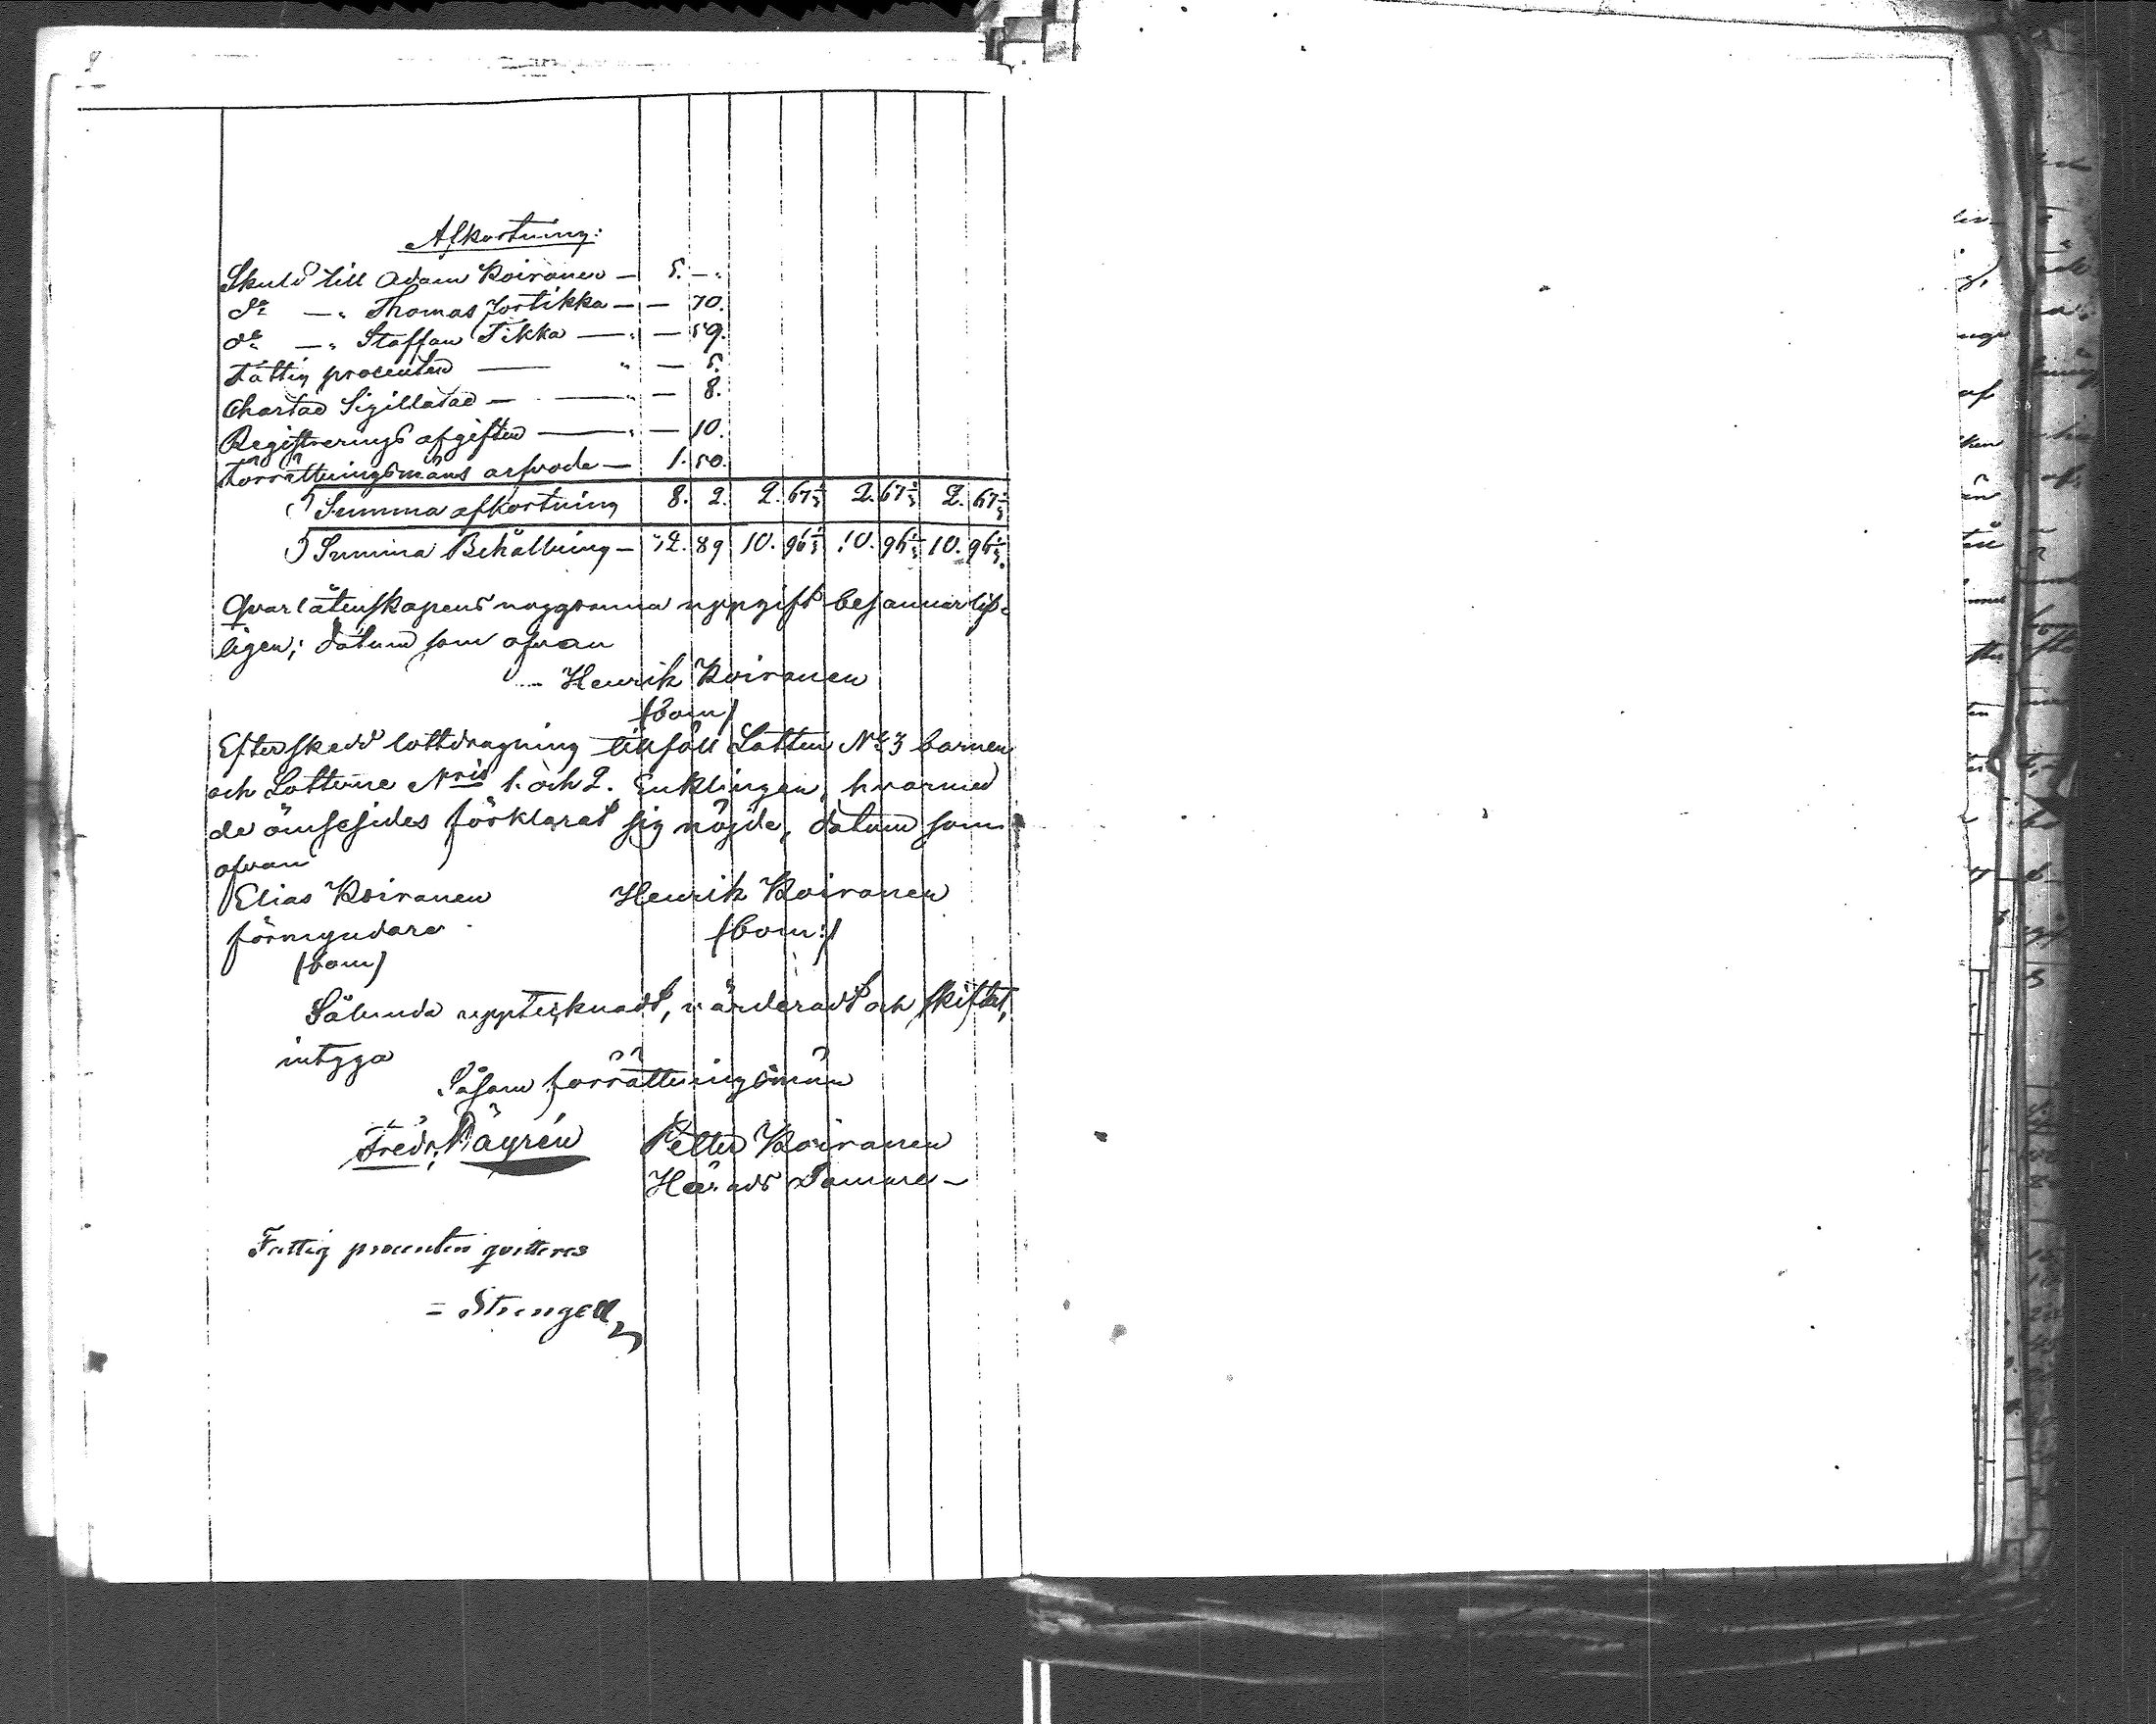 Afkortning:
Skuld till Adam Koiranen — 5. —.
do — " Thomas Jortikka — — 70.
do — " Staffan Tikka — " — 59.
Fattig procenten — " — 5.
Chartae Sigillatae — " — 8.
Registrerings afgiften — " — 10.
Förrättningsmäns arfvode — 1. 50.
Summa afkortning 8. 2. 2. 67 1/3 2. 67 1/3 2. 67 1/3
Summa Behållning — 32. 89 10. 96 1/3 10. 96 1/3 10. 96 1/3.
Qvarlåtenskapens noggranna uppgift besannar lif-
ligen; datum som ofvan
Henrik Koiranen
(bom)
Efter skedd lottdragning tillföll Lotten No 3 barnen
och Lotterne Nris 1. och 2. Enklingen, hvarmed
de ömsesides förklarat sig nöjde, datum som
ofvan
Elias Koiranen Henrik Koiranen
förmyndare (bom:)
(bom)
Sålunda upptecknadt, värderadt och skiftat,
intyga
Såsom förrättningsmän
Fredr. Näyrén Petter Koiranen
Härads Domare —
Fattig procenten qvitteras
= Strengell